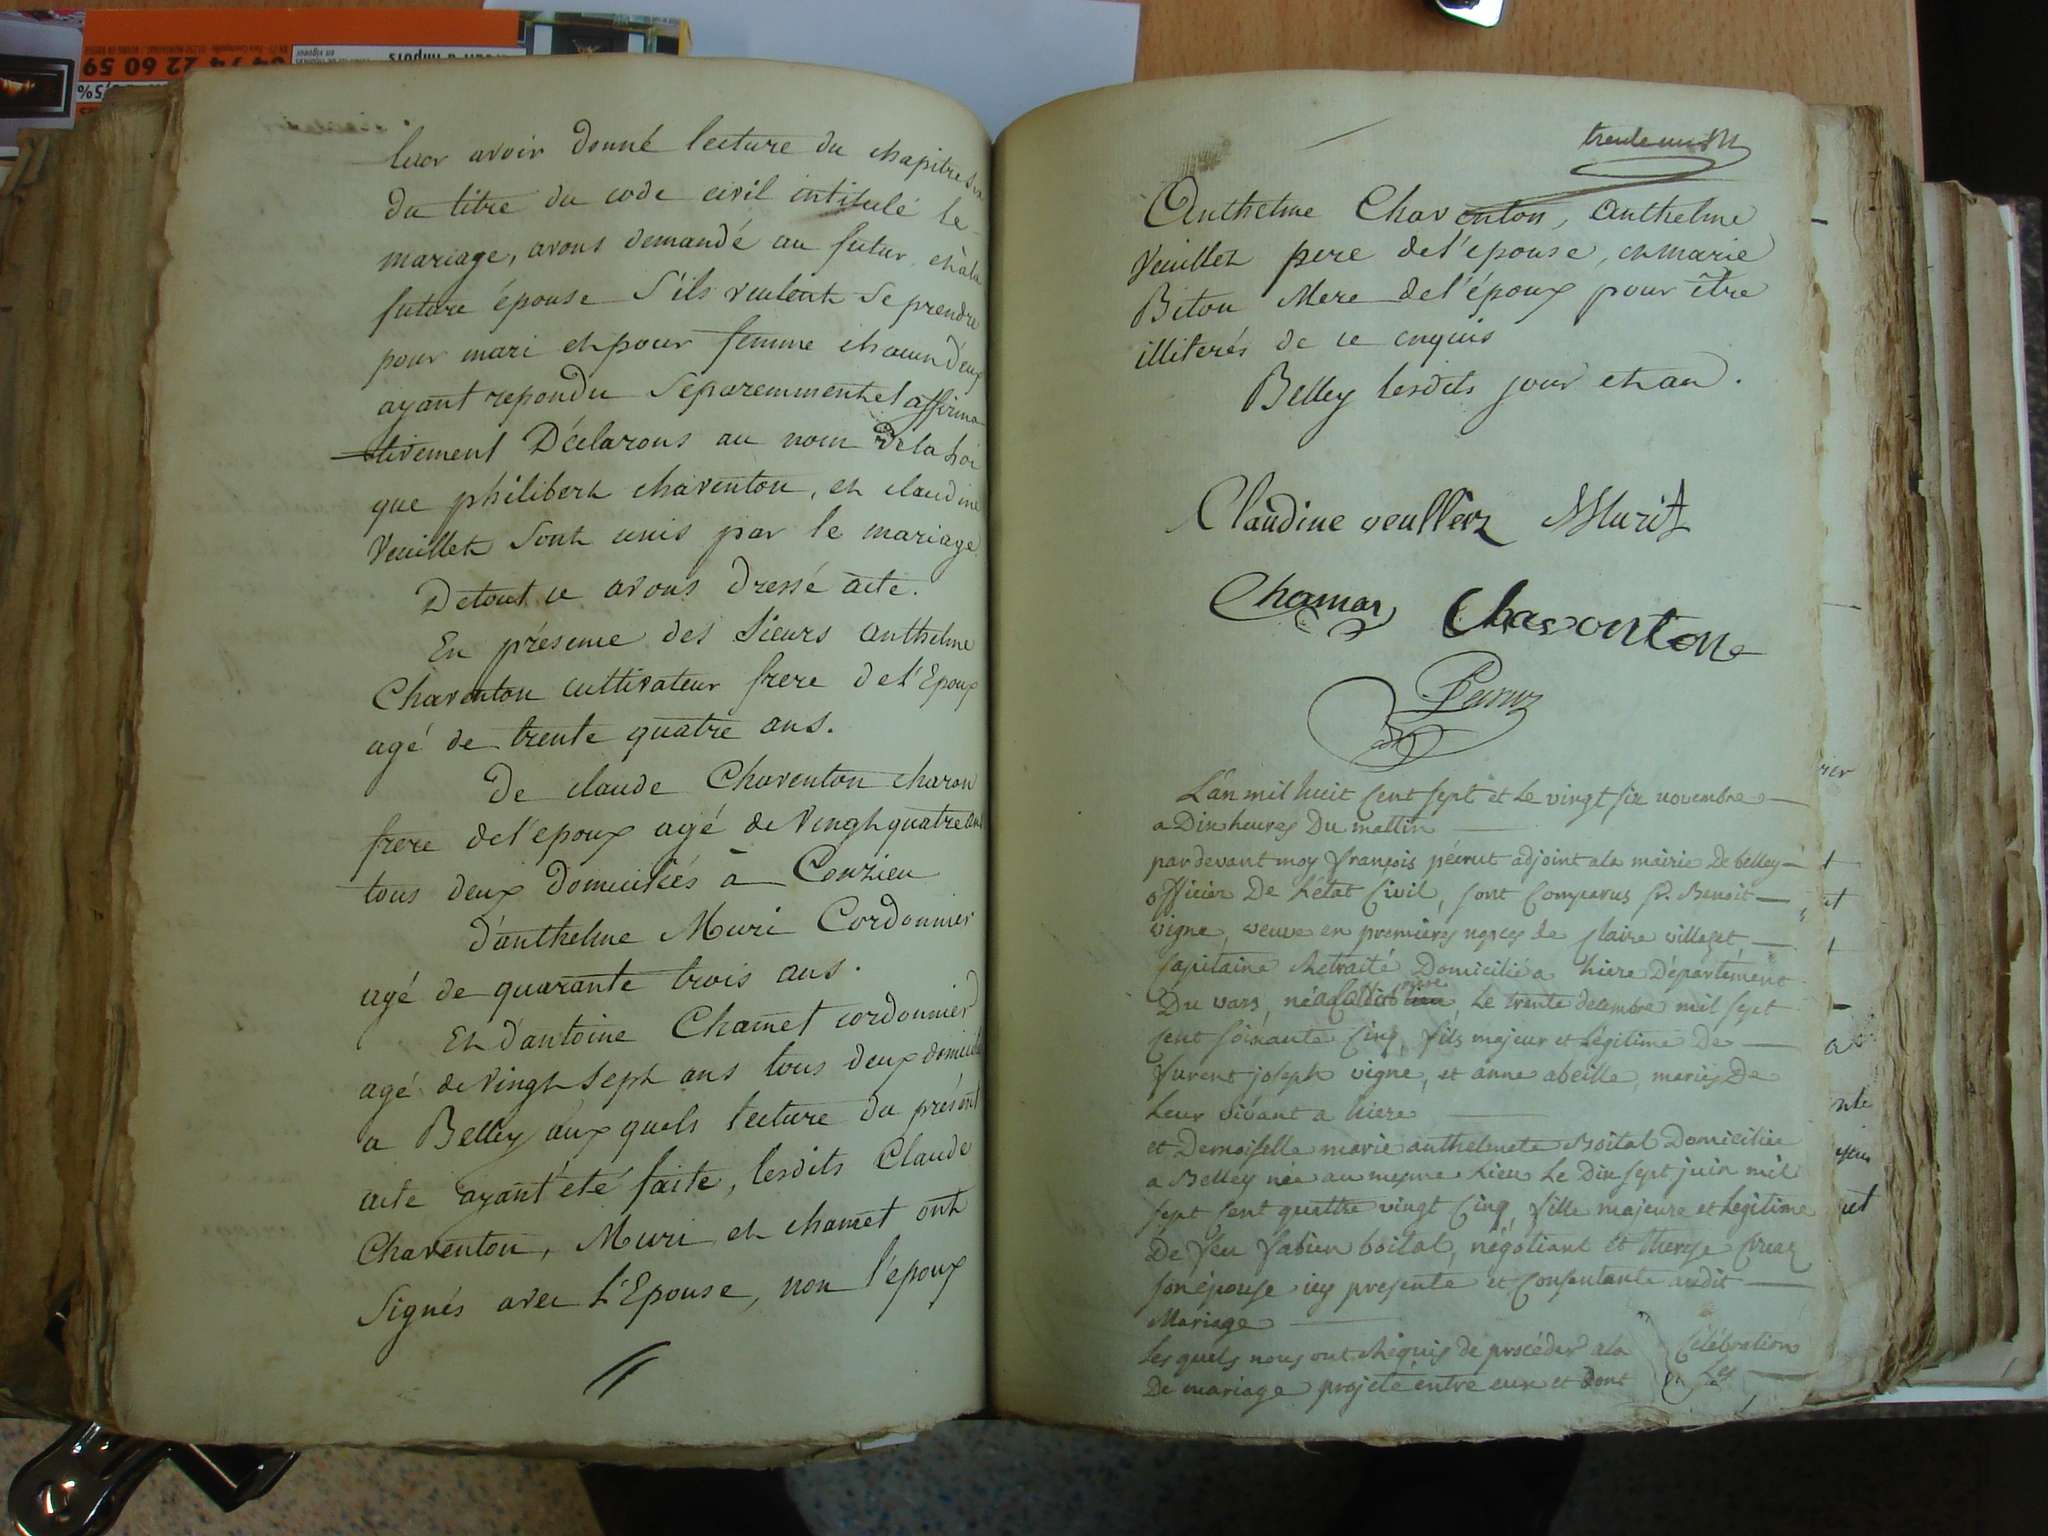 04 74 22 60 59
leur avoir donné lecture du chapitre six
du titre du code civil intitulé le
mariage, avons demandé au futur, et à la
future épouse s'ils veulent se prendre
pour mari et pour femme chacun d'eux
ayant repondu separemment et affirma
tivement Déclarons au nom de la loi
que philibert chaventon, et claudine
Veuillet sont unis par le mariage.
De tout ce avons dressé acte.
En présence des sieurs anthelme
Charenton cultivateur frere de l'Epoux
agé de trente quatre ans.
De claude Charenton charon
frere de l'epoux agé de vingt quatre ans
tous deux domiciliés à Conzieu
D'anthelme Muri Cordonnier
agé de quarante trois ans.
Et d'antoine Chamet cordonnier
agé de vingt sept ans tous deux domiciliés
a Belley aux quels lecture du présent
acte ayant été faite, lesdits Claude
Charenton, Muri et chamet ont
signés avec l'Epouse, non l'époux
trente un
Anthelme Charenton, anthelme
Veuillet pere de l'epouse, et marie
Biton Mere de l'époux pour être
illiterés de ce enquis
Belley lesdits jour et an.
Claudine veulliez Murit
Chamay Chavonton
L'an mil huit cent sept et le vingt six novembre
a Dix heures Du mattin
pardevant moy françois pécrut adjoint a la mairie De belley
officier De L'état Civil, sont Comparus Sr. Benoit
vigne, veuve en premieres noces de Claire villaget
Capitaine Retraité Domicilié a hiere Département
Du vars, né le trente decembre mil sept
cent soixante Cinq, fils majeur et Légitime De
joseph vigne, et anne abeille, mariés De
Leur vivant a hiere
et Demoiselle marie anthelmete Boital Domiciliée
a Belley née au mesme Lieu Le Dix sept juin mil
sept cent quattre vingt Cinq, fille majeure et Legitime
De feu fabien boital, négotiant et therese
son épouse icy presente et Consentante audit
Mariage
Lesquels nous ont Requis de procéder a la Célébration
De mariage projeté entre eux et dont Les